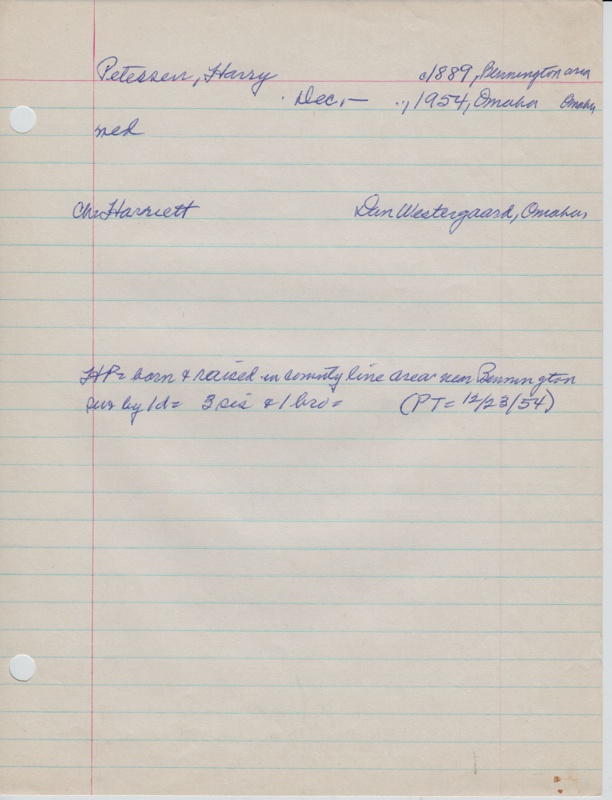 Petersen, Harry c1889, Bennington area
Dec, — ., 1954, Omaha Omaha
med
Ch: Harriett Dan Westergaard, Omaha
HP= born & raised in county line area near Bennington
sur by 1d= 3 sis & 1 bro= (PT= 12/23/54)